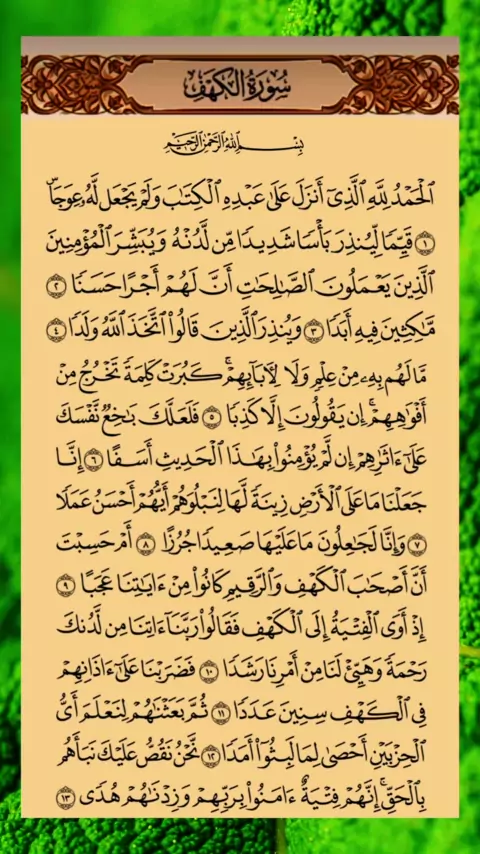 سُورَةُ الْكَهْفِ
بِسْمِ اللَّهِ الرَّحْمَٰنِ الرَّحِيمِ
ٱلْحَمْدُ لِلَّهِ ٱلَّذِىٓ أَنزَلَ عَلَىٰ عَبْدِهِ ٱلْكِتَٰبَ وَلَمْ يَجْعَل لَّهُۥ عِوَجَاۜ
١ قَيِّمًا لِّيُنذِرَ بَأْسًا شَدِيدًا مِّن لَّدُنْهُ وَيُبَشِّرَ ٱلْمُؤْمِنِينَ
ٱلَّذِينَ يَعْمَلُونَ ٱلصَّٰلِحَٰتِ أَنَّ لَهُمْ أَجْرًا حَسَنًا ٢
مَّٰكِثِينَ فِيهِ أَبَدًا ٣ وَيُنذِرَ ٱلَّذِينَ قَالُوا۟ ٱتَّخَذَ ٱللَّهُ وَلَدًا ٤
مَّا لَهُم بِهِۦ مِنْ عِلْمٍ وَلَا لِـَٔابَآئِهِمْ ۚ كَبُرَتْ كَلِمَةً تَخْرُجُ مِنْ
أَفْوَٰهِهِمْ ۚ إِن يَقُولُونَ إِلَّا كَذِبًا ٥ فَلَعَلَّكَ بَٰخِعٌ نَّفْسَكَ
عَلَىٰٓ ءَاثَٰرِهِمْ إِن لَّمْ يُؤْمِنُوا۟ بِهَٰذَا ٱلْحَدِيثِ أَسَفًا ٦ إِنَّا
جَعَلْنَا مَا عَلَى ٱلْأَرْضِ زِينَةً لَّهَا لِنَبْلُوَهُمْ أَيُّهُمْ أَحْسَنُ عَمَلًا
٧ وَإِنَّا لَجَٰعِلُونَ مَا عَلَيْهَا صَعِيدًا جُرُزًا ٨ أَمْ حَسِبْتَ
أَنَّ أَصْحَٰبَ ٱلْكَهْفِ وَٱلرَّقِيمِ كَانُوا۟ مِنْ ءَايَٰتِنَا عَجَبًا ٩
إِذْ أَوَى ٱلْفِتْيَةُ إِلَى ٱلْكَهْفِ فَقَالُوا۟ رَبَّنَآ ءَاتِنَا مِن لَّدُنكَ
رَحْمَةً وَهَيِّئْ لَنَا مِنْ أَمْرِنَا رَشَدًا ١٠ فَضَرَبْنَا عَلَىٰٓ ءَاذَانِهِمْ
فِى ٱلْكَهْفِ سِنِينَ عَدَدًا ١١ ثُمَّ بَعَثْنَٰهُمْ لِنَعْلَمَ أَىُّ
ٱلْحِزْبَيْنِ أَحْصَىٰ لِمَا لَبِثُوٓا۟ أَمَدًا ١٢ نَّحْنُ نَقُصُّ عَلَيْكَ نَبَأَهُم
بِٱلْحَقِّ ۚ إِنَّهُمْ فِتْيَةٌ ءَامَنُوا۟ بِرَبِّهِمْ وَزِدْنَٰهُمْ هُدًى ١٣